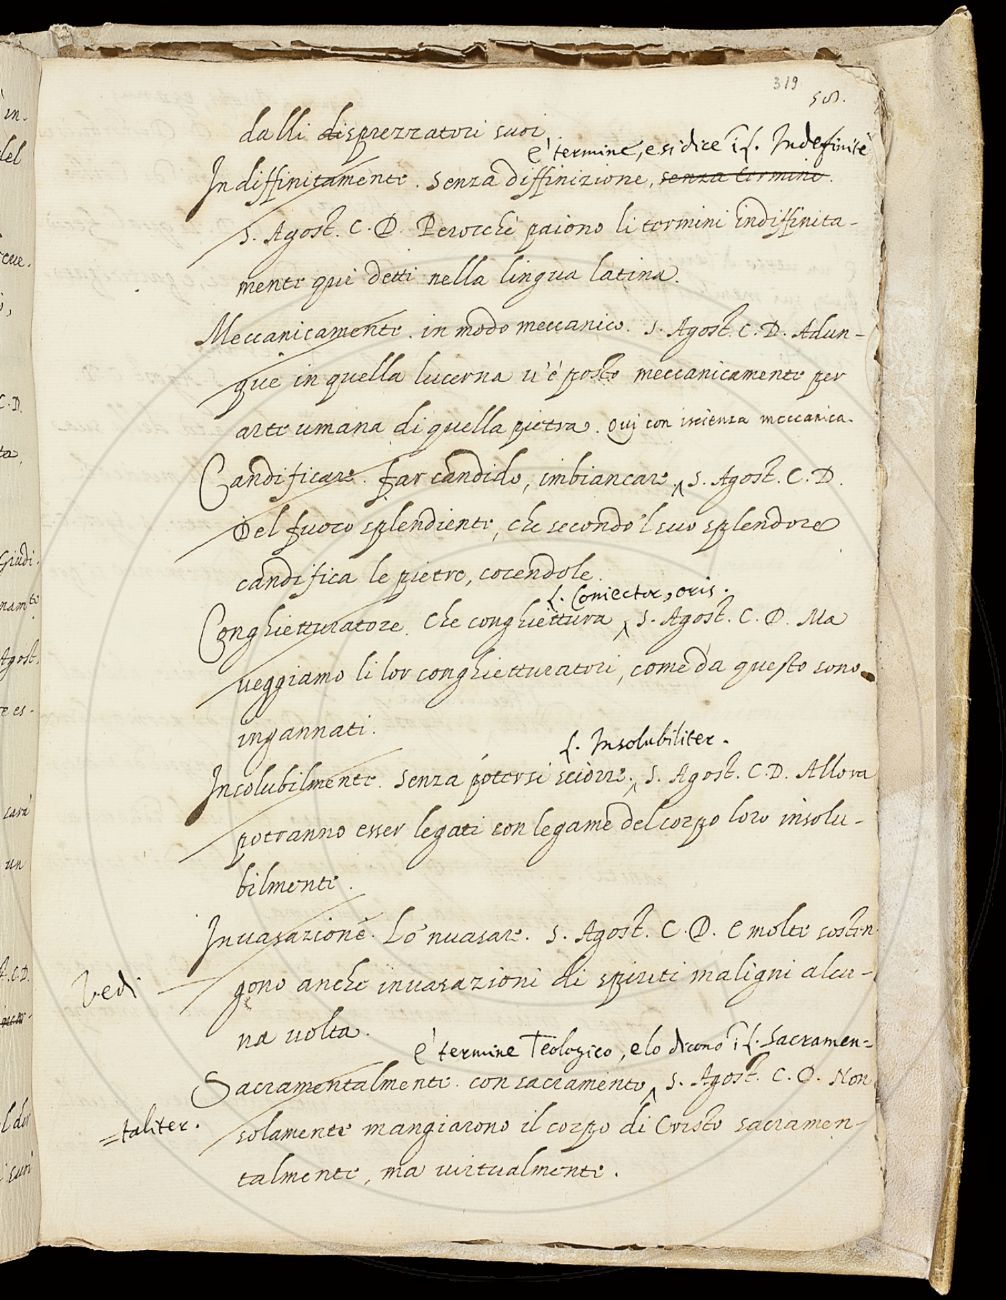 319
dalli disprezzatori suoi
è termine, e si dice ĩ l. Indefinitè
Indiffinitamente. Senza diffinizione, senza termine.
S. Agost. C. D. Perocchè paiono li termini indiffinita-
mente quì detti nella lingua latina.
Meccanicamente. in modo meccanico. S. Agost. C. D. Adun-
que in quella lucerna v'è posto meccanicamente per
arte umana di quella pietra. Qui con scienza meccanica.
Candificare. far candido, imbiancare. S. Agost. C. D.
Del fuoco splendiente, che secondo 'l suo splendore
candifica le pietre, cocendole.
l. Coniector, oris.
Conghietturatore. Che conghiettura. S. Agost. C. D. Ma
veggiamo li lor conghietturatori, come da questo sono
ingannati.
l. Insolubiliter.
Insolubilmente. Senza potersi sciorre. S. Agost. C. D. Allora
potranno esser legati con legame del corpo loro insolu-
bilmente.
Invasazione. Lo 'nvasare. S. Agost. C. D. E molte sosten
Vedi
gono anche invasazioni di spiriti maligni alcu-
na volta.
è termine Teologico, e lo dicono ĩ l. Sacramen=
Sacramentalmente. con sacramento. S. Agost. C. D. Non
=taliter.
solamente mangiarono il corpo di Cristo sacramen-
talmente, ma virtualmente.